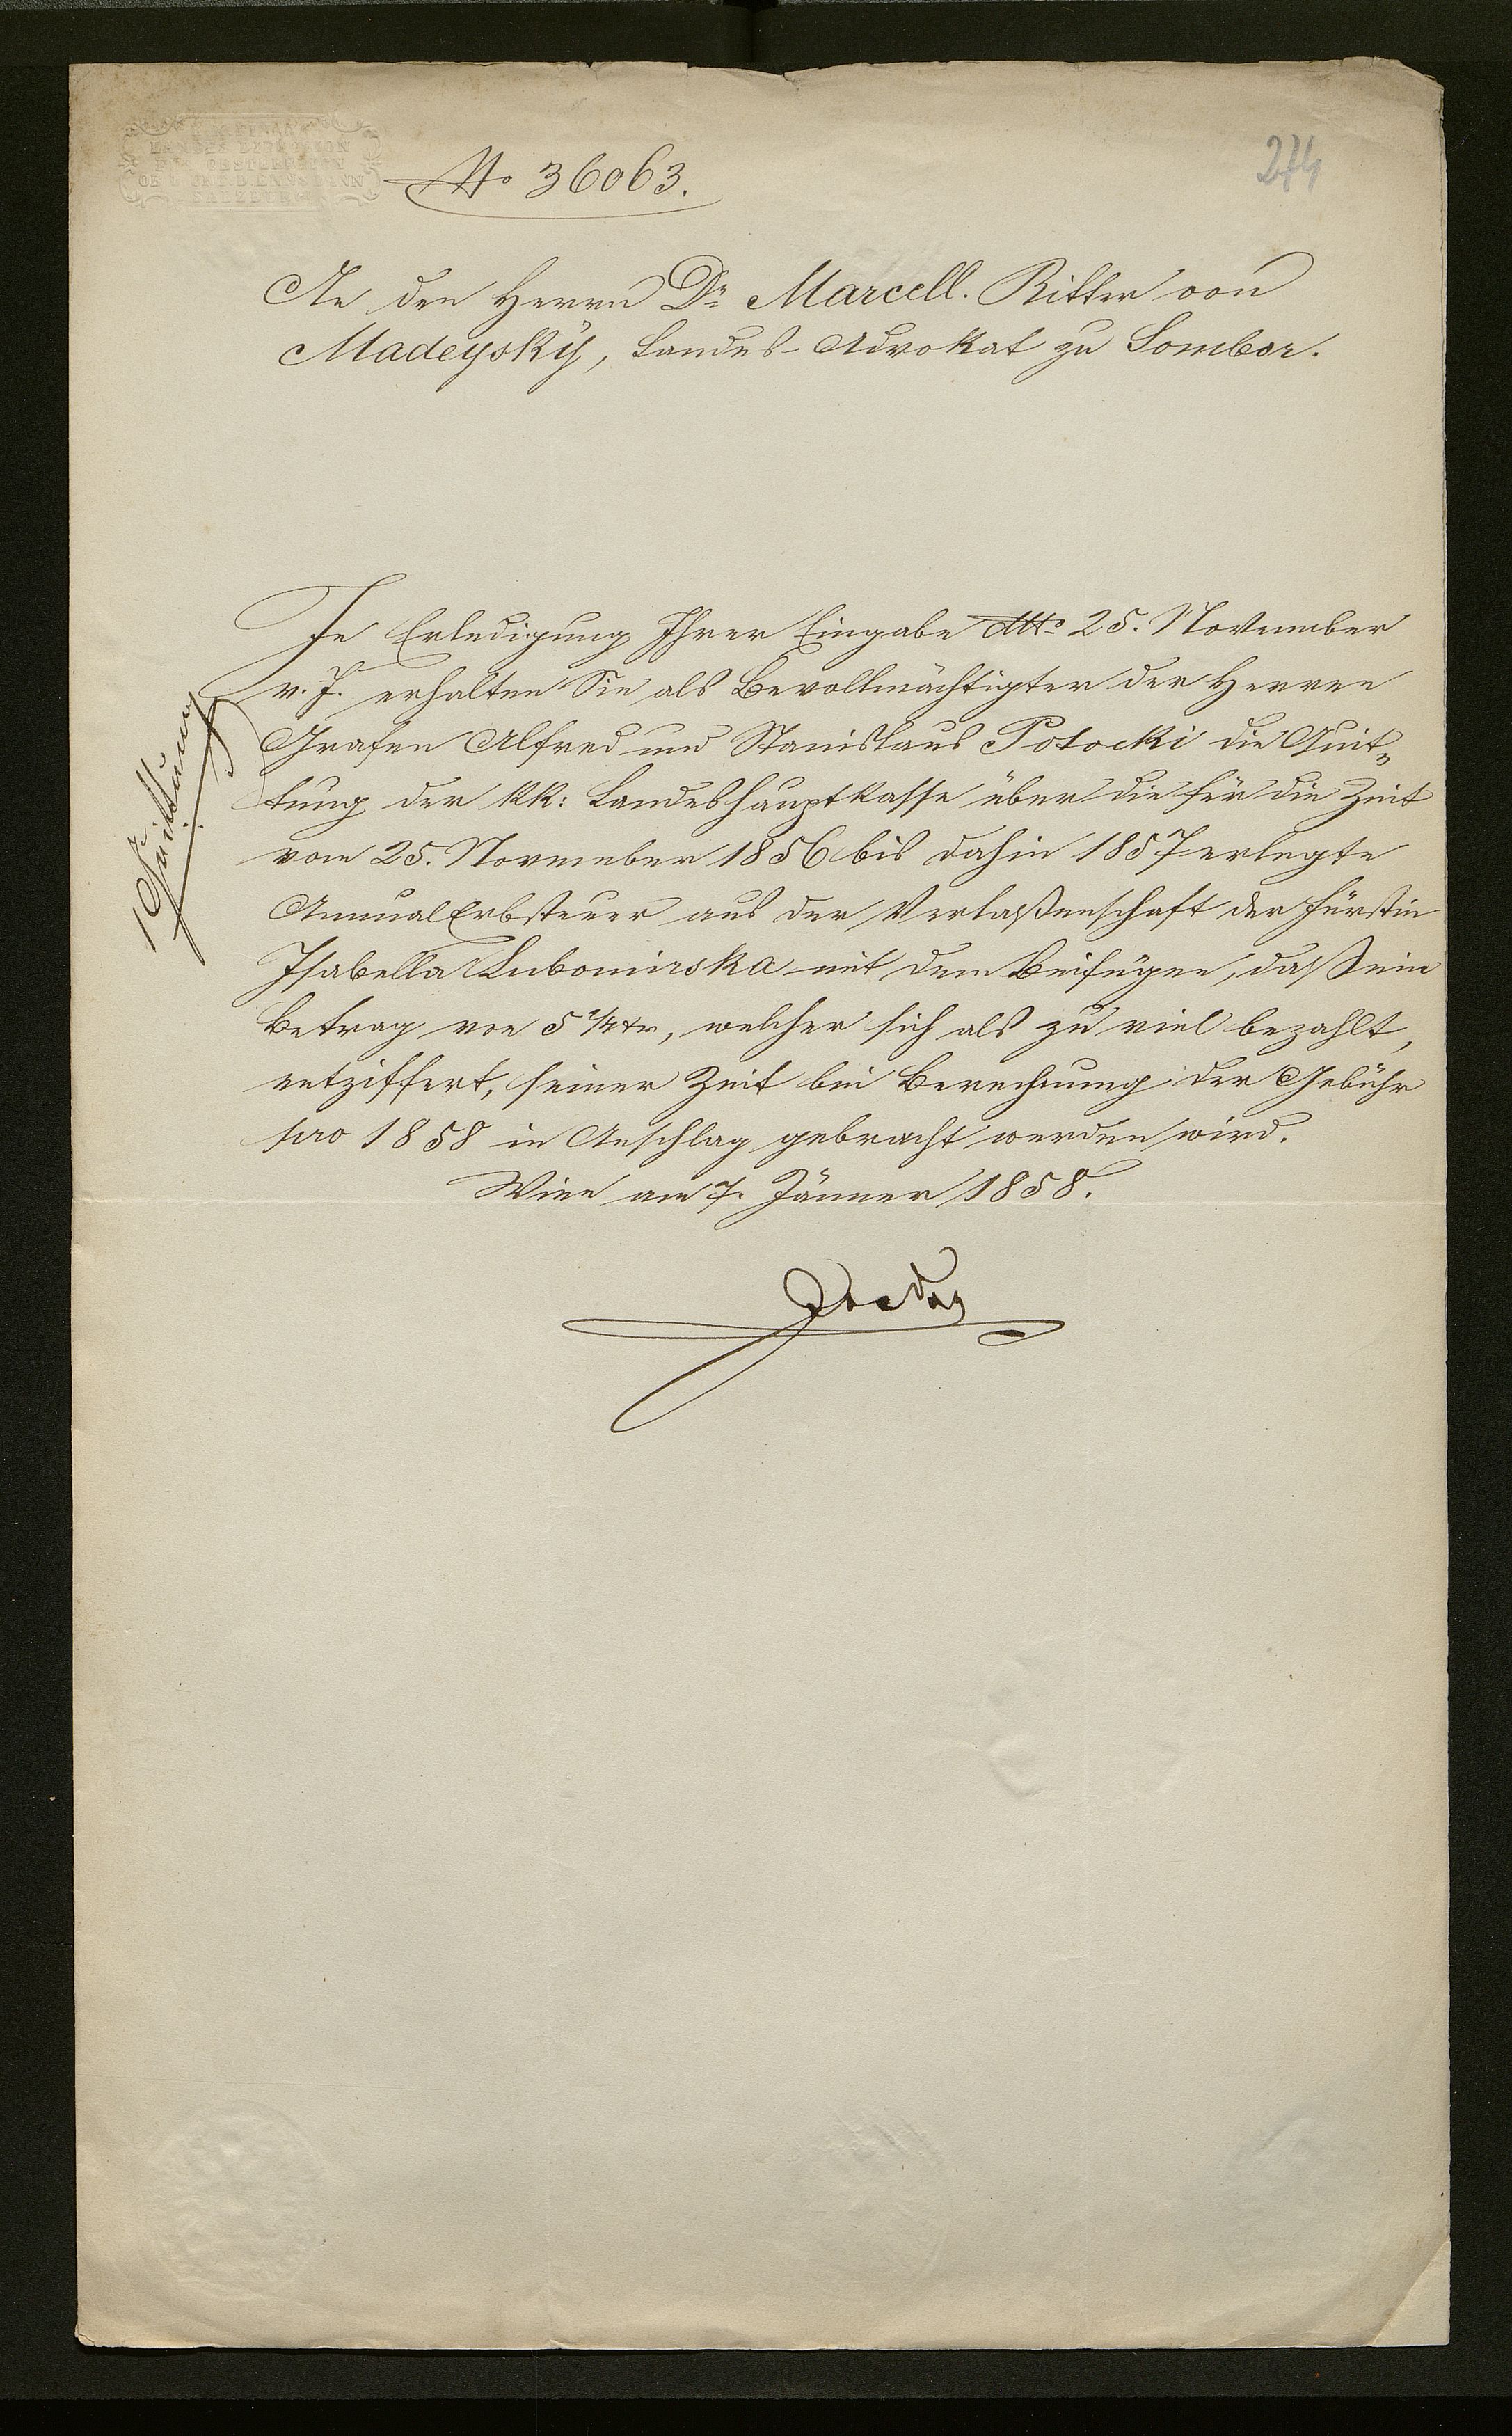 No 36063.
274
An den Herrn Dr Marcell. Ritter von
Madeyski, Landes-Advokat zu Sambor.
In Erledigung Ihrer Eingabe dtto 25. November
v. J. erhalten Sie als Bevollmächtigter der Herren
Grafen Alfred und Stanislaus Potocki die Quit-
tung der kk: Landeshauptkasse über die für die Zeit
vom 25. November 1856 bis dahin 1857 erlegte
AnnualErbsteuer aus der Verlaßenschaft der Fürstin
Isabella Lubomirska mit dem Beifügen, daß ein
Betrag von 5 1/4 xr, welcher sich als zu viel bezahlt,
entziffert, seiner Zeit bei Berechnung der Gebühr
pro 1858 in Anschlag gebracht werden wird.
Wien am 7. Jänner 1858.
1 Quittung